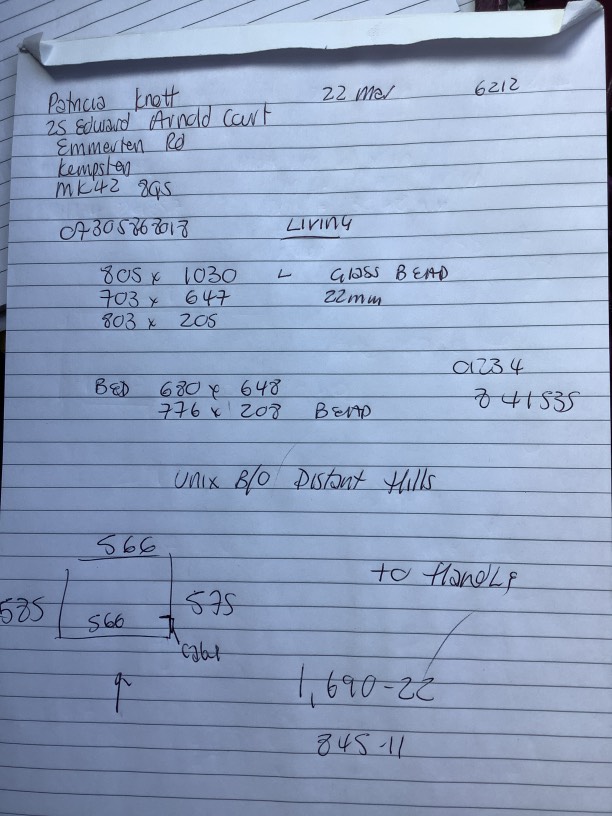 Patricia Knott 22 Mar 6212
25 Edward Arnold Court
Emmerten Rd
Kempsten
MK42 8QS
Living
805 x 1030 L Glass BEAD
703 x 647 22mm
803 x 205
01234
BED 680 x 648 841535
776 x 208 BEAD
Unix B/O Distant Hills
566
to Handle
585 566 575
1,690-22
845-11